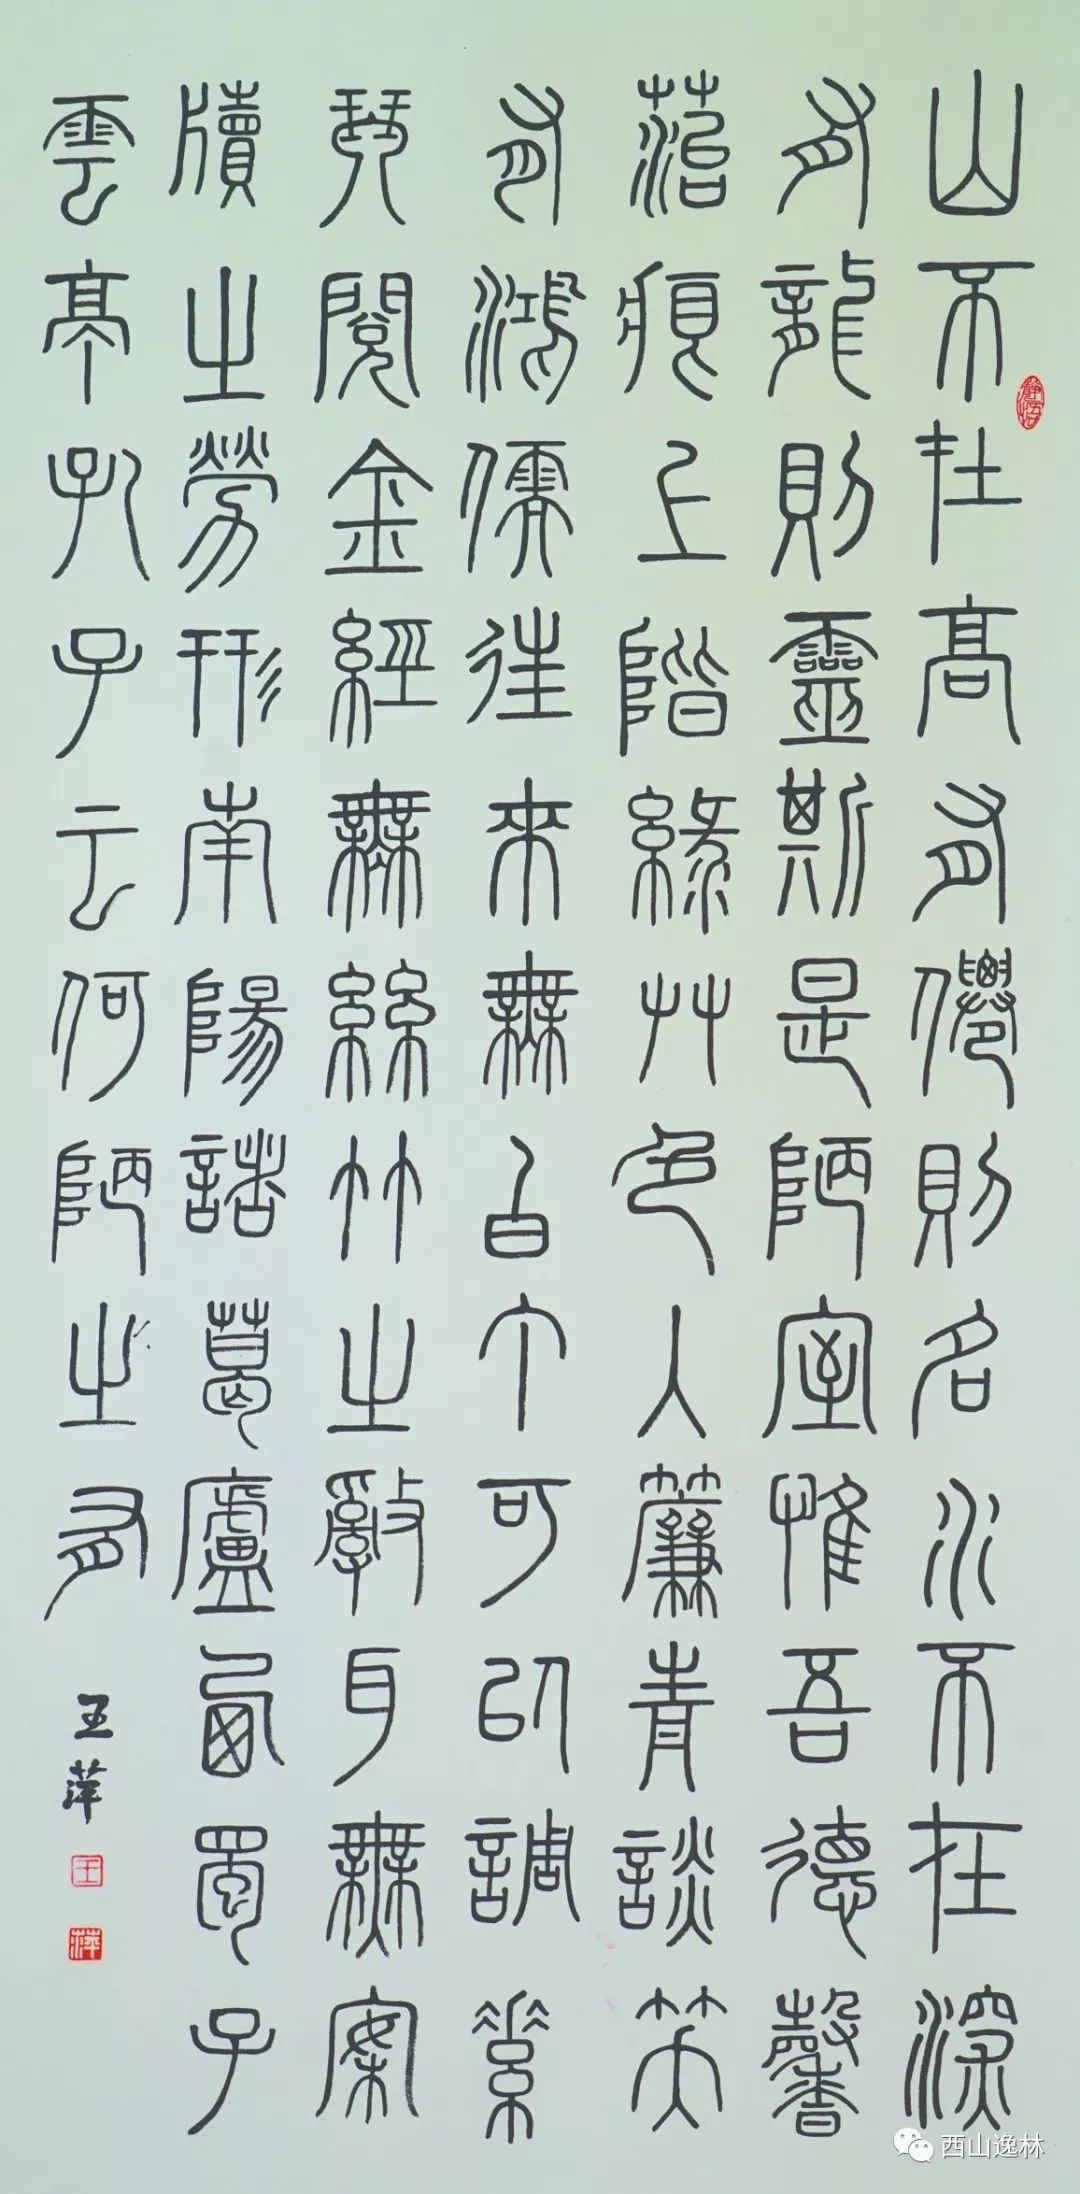 山不在高有僊則名水不在深
有龍則靈斯是陋室惟吾德馨
菭痕上階綠艸色入簾青談笑
有鴻儒往來無白丁可以調素
琴閱金經無絲竹之亂耳無案
牘之勞形南陽諸葛廬西蜀子
雲亭孔子云何陋之有
王萍
王
萍
靜悟
西山逸林